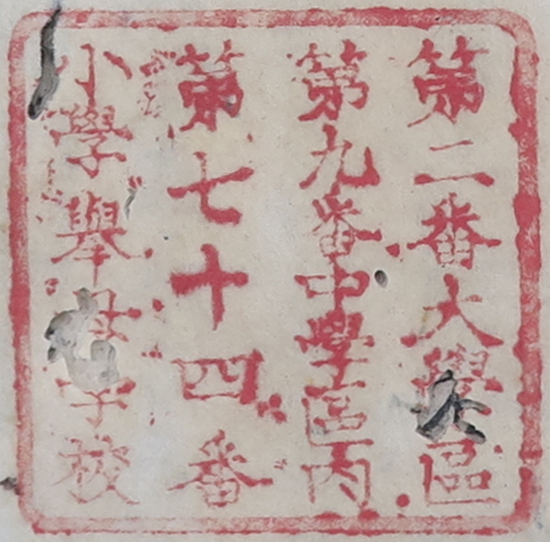 第二番大學區
第九番中學區内
第七十四番
小學擧母学校